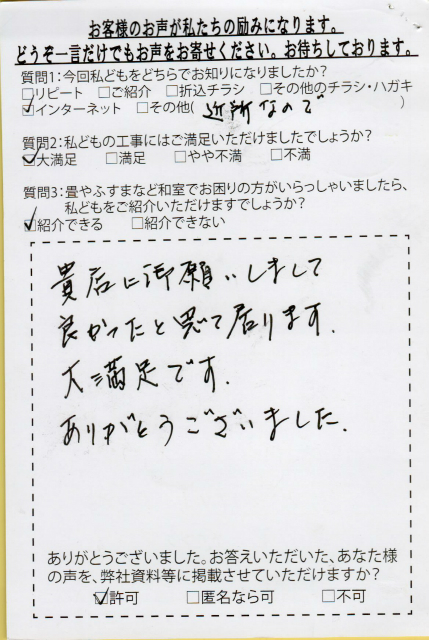 お客様のお声が私たちの励みになります。
どうぞ一言だけでもお声をお寄せください。お待ちしております。
質問1：今回私どもをどちらでお知りになりましたか？
□リピート □ご紹介 □折込チラシ □その他のチラシ・ハガキ
☑インターネット □その他( 近所なので )
質問2：私どもの工事にはご満足いただけましたでしょうか？
☑大満足 □満足 □やや不満 □不満
質問3：畳やふすまなど和室でお困りの方がいらっしゃいましたら、
私どもをご紹介いただけますでしょうか？
☑紹介できる □紹介できない
貴店に御願いしまして
良かったと思って居ります.
大満足です.
ありがとうございました.
ありがとうございました。お答えいただいた、あなた様
の声を、弊社資料等に掲載させていただけますか？
☑許可 □匿名なら可 □不可